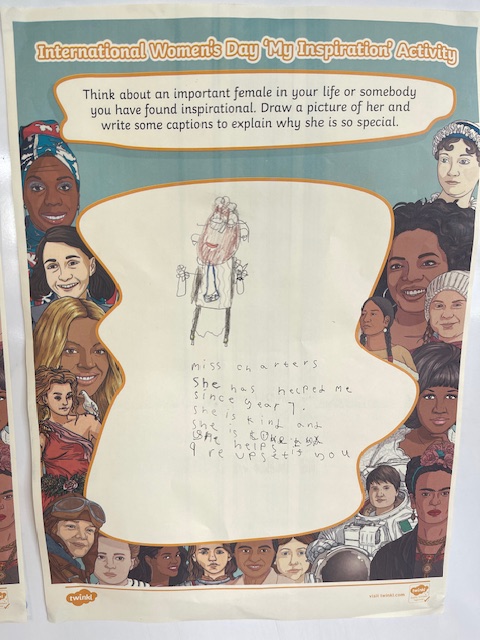 International Women's Day 'My Inspiration' Activity
Think about an important female in your life or somebody
you have found inspirational. Draw a picture of her and
write some captions to explain why she is so special.
miss charters
She has helped me
since year 7.
she is kind and
she is
she helps
re upset if you
twinkl
visit twinkl.com
twinkl